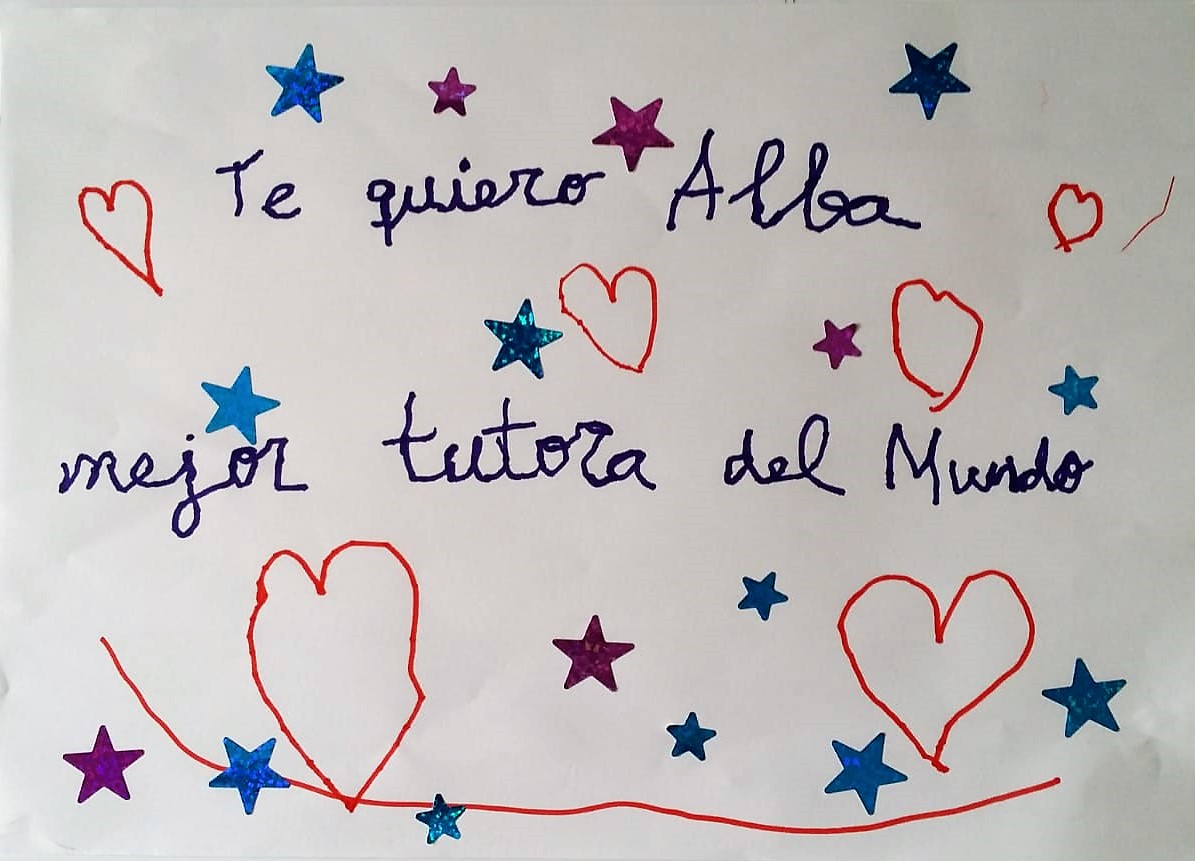 Te quiero Alba
mejor tutora del Mundo